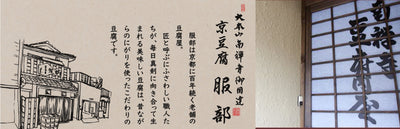 大本山南禅寺御用達
京豆腐 服部
服部は京都に百年続く老舗の
豆腐屋。
匠と呼ぶにふさわしい職人た
ちが、毎日真剣に向き合って生
まれる美味しい豆腐は、昔なが
らのにがりを使ったこだわりの
豆腐です。
南禅寺